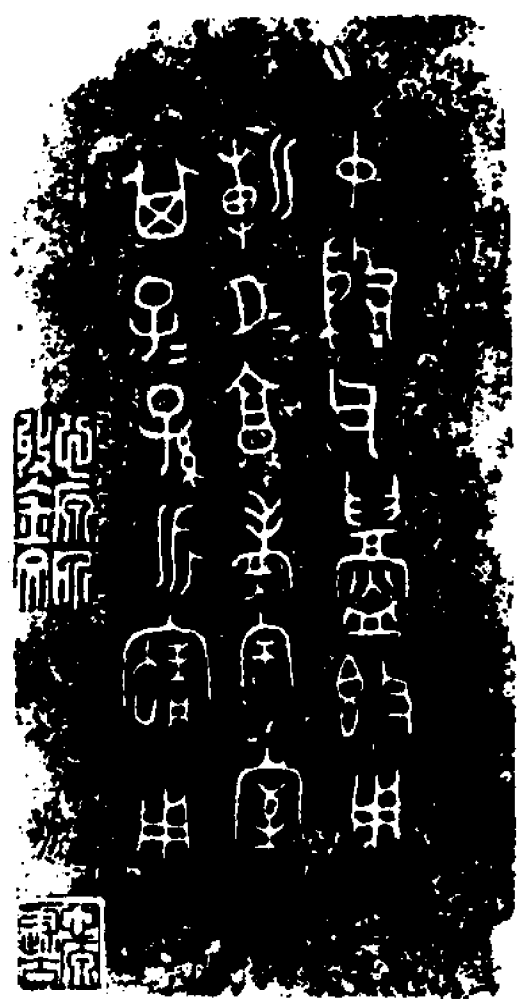 中殷父鑄𣪘用
朝夕亯孝宗室
其子=孫永寶用